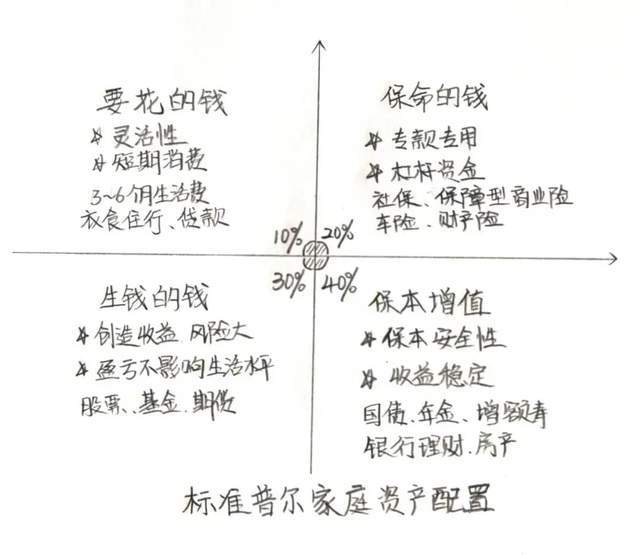 要花的钱
* 灵活性
* 短期消费
3~6个月生活费
衣食住行、贷款
10%
保命的钱
* 专款专用
* 杠杆资金
社保、保障型商业险
车险、财产险
20%
30%
生钱的钱
* 创造收益 风险大
* 盈亏不影响生活水平
股票、基金、期货
40%
保本增值
* 保本安全性
* 收益稳定
国债、年金、增额寿
银行理财、房产
标准普尔家庭资产配置